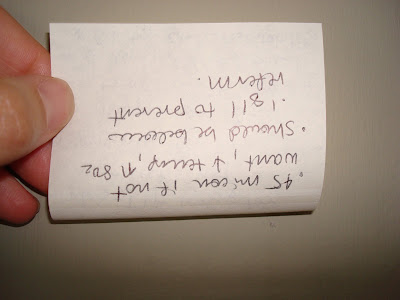 .45 micon if not
want, ↓ temp, ↑ SO2
• Should be below
.1 g/l to prevent
referm.